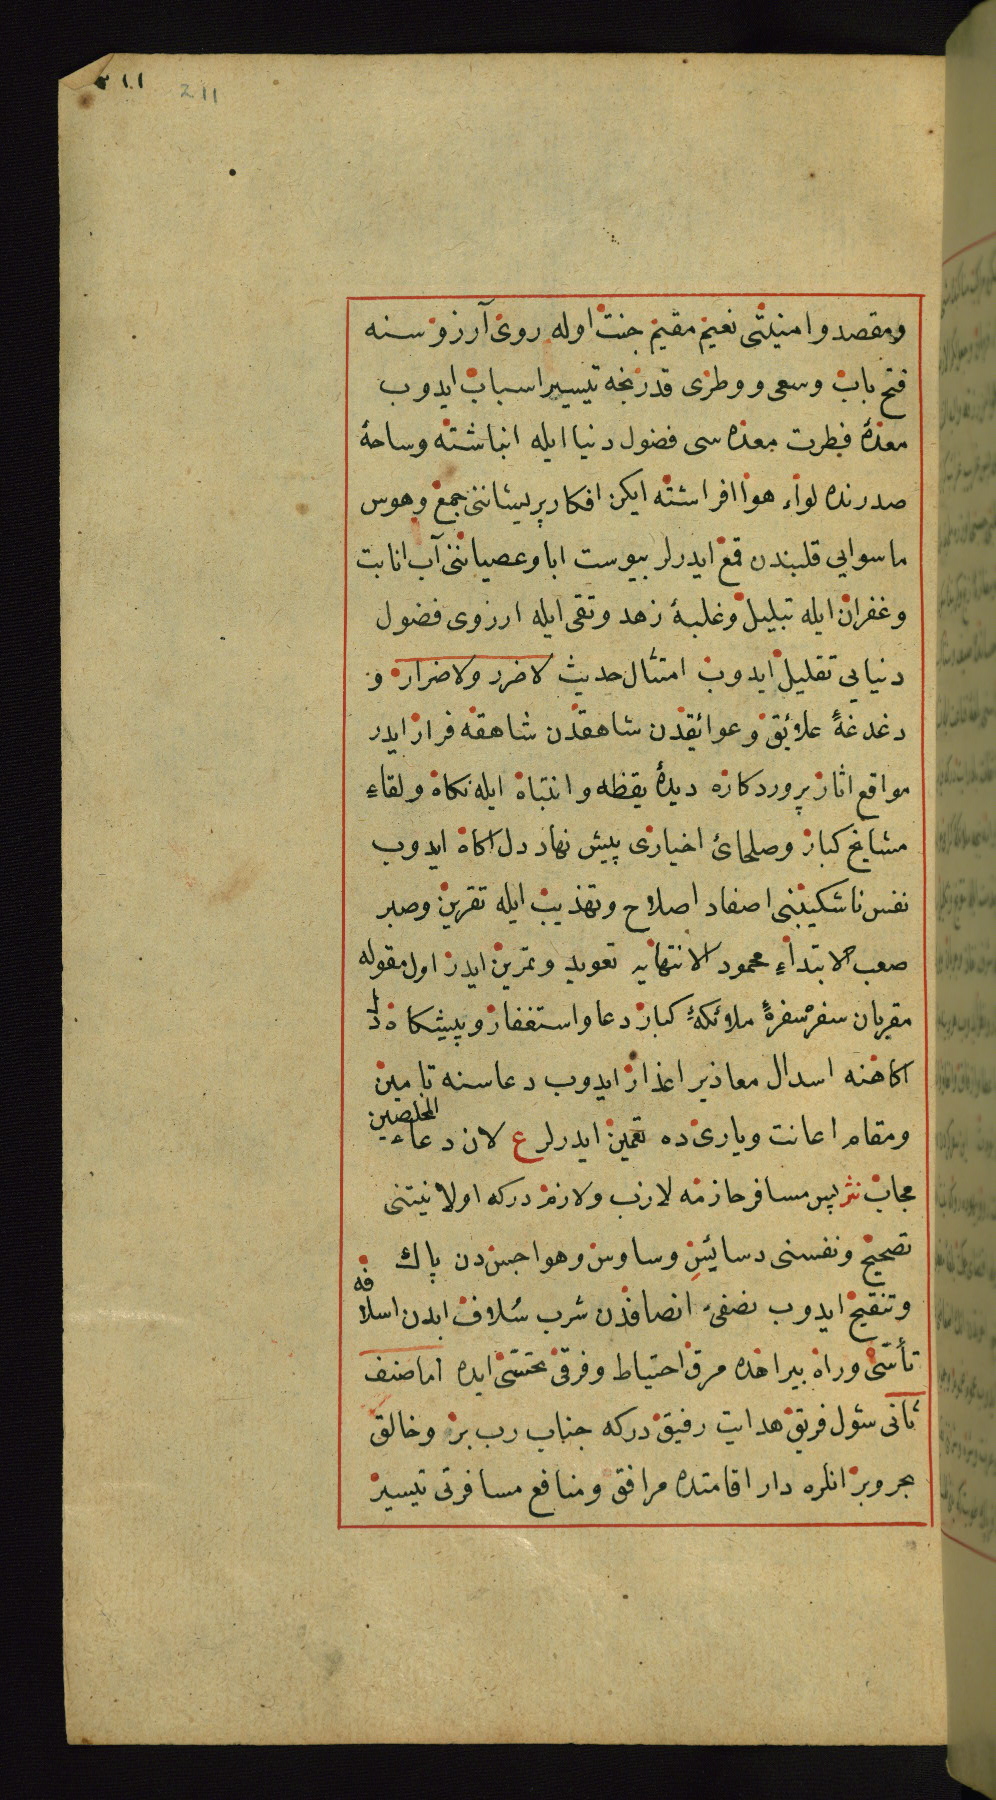 ٢١١ 211
ومقصد وامنيتى نعيم مقيم جنت اوله روى آرزوسنه
فتح باب وسعى ووطرى قدرنجه تيسير اسباب ايدوب
معدۀ فطرت معده سى فضول دنيا ايله انباشته وساحۀ
صدرنده لواء هوا افراشته ايكن افكار پريشاننى جمع وهوس
ماسوايى قلبندن قمع ايدرلر يبوست ابا وعصياننى آب انابت
وغفران ايله تبليل وغلبۀ زهد وتقى ايله ارزوى فضول
دنيايى تقليل ايدوب امتثال حديث لا ضرر ولا ضرار و
دغدغۀ علائق وعوائقدن شاهقدن شاهقه فرار ايدر
مواقع اثار پروردكاره ديدۀ يقظه وانتباه ايله نكاه ولقاء
مشايخ كبار وصلحائ اخيارى پيش نهاد دل اكاه ايدوب
نفس ناشكيبنى اصفاد اصلاح وتهذيب ايله تقرين وصبر
صعب الابتداء محمود الانتهايه تعويد وتمرين ايدر اول مقوله
مقربان سفر سفرۀ ملائكۀ كبار دعا واستغفار وپيشكاه دل
اكاهنه اسدال معاذير اعذار ايدوب دعاسنه تامين
ومقام اعانت وياريده تعمين ايدرلر ع لان دعاء المخلصين
مجاب نثر پس مسافر حازمه لازب ولازم دركه اولا نيتنى
تصحيح ونفسنى دسائس وساوس وهواجسدن پاك
وتنقيح ايدوب نصفى انصافدن شرب سلاف ايدن اسلافه
تأسى وراه بيراهده مرق احتياط وفرقى تحشى ايده اما صنف
ثانى سئول فريق هدايت رفيق دركه جناب رب بر وخالق
بحر وبر انلره دار اقامتده مرافق ومنافع مسافرتى تيسير